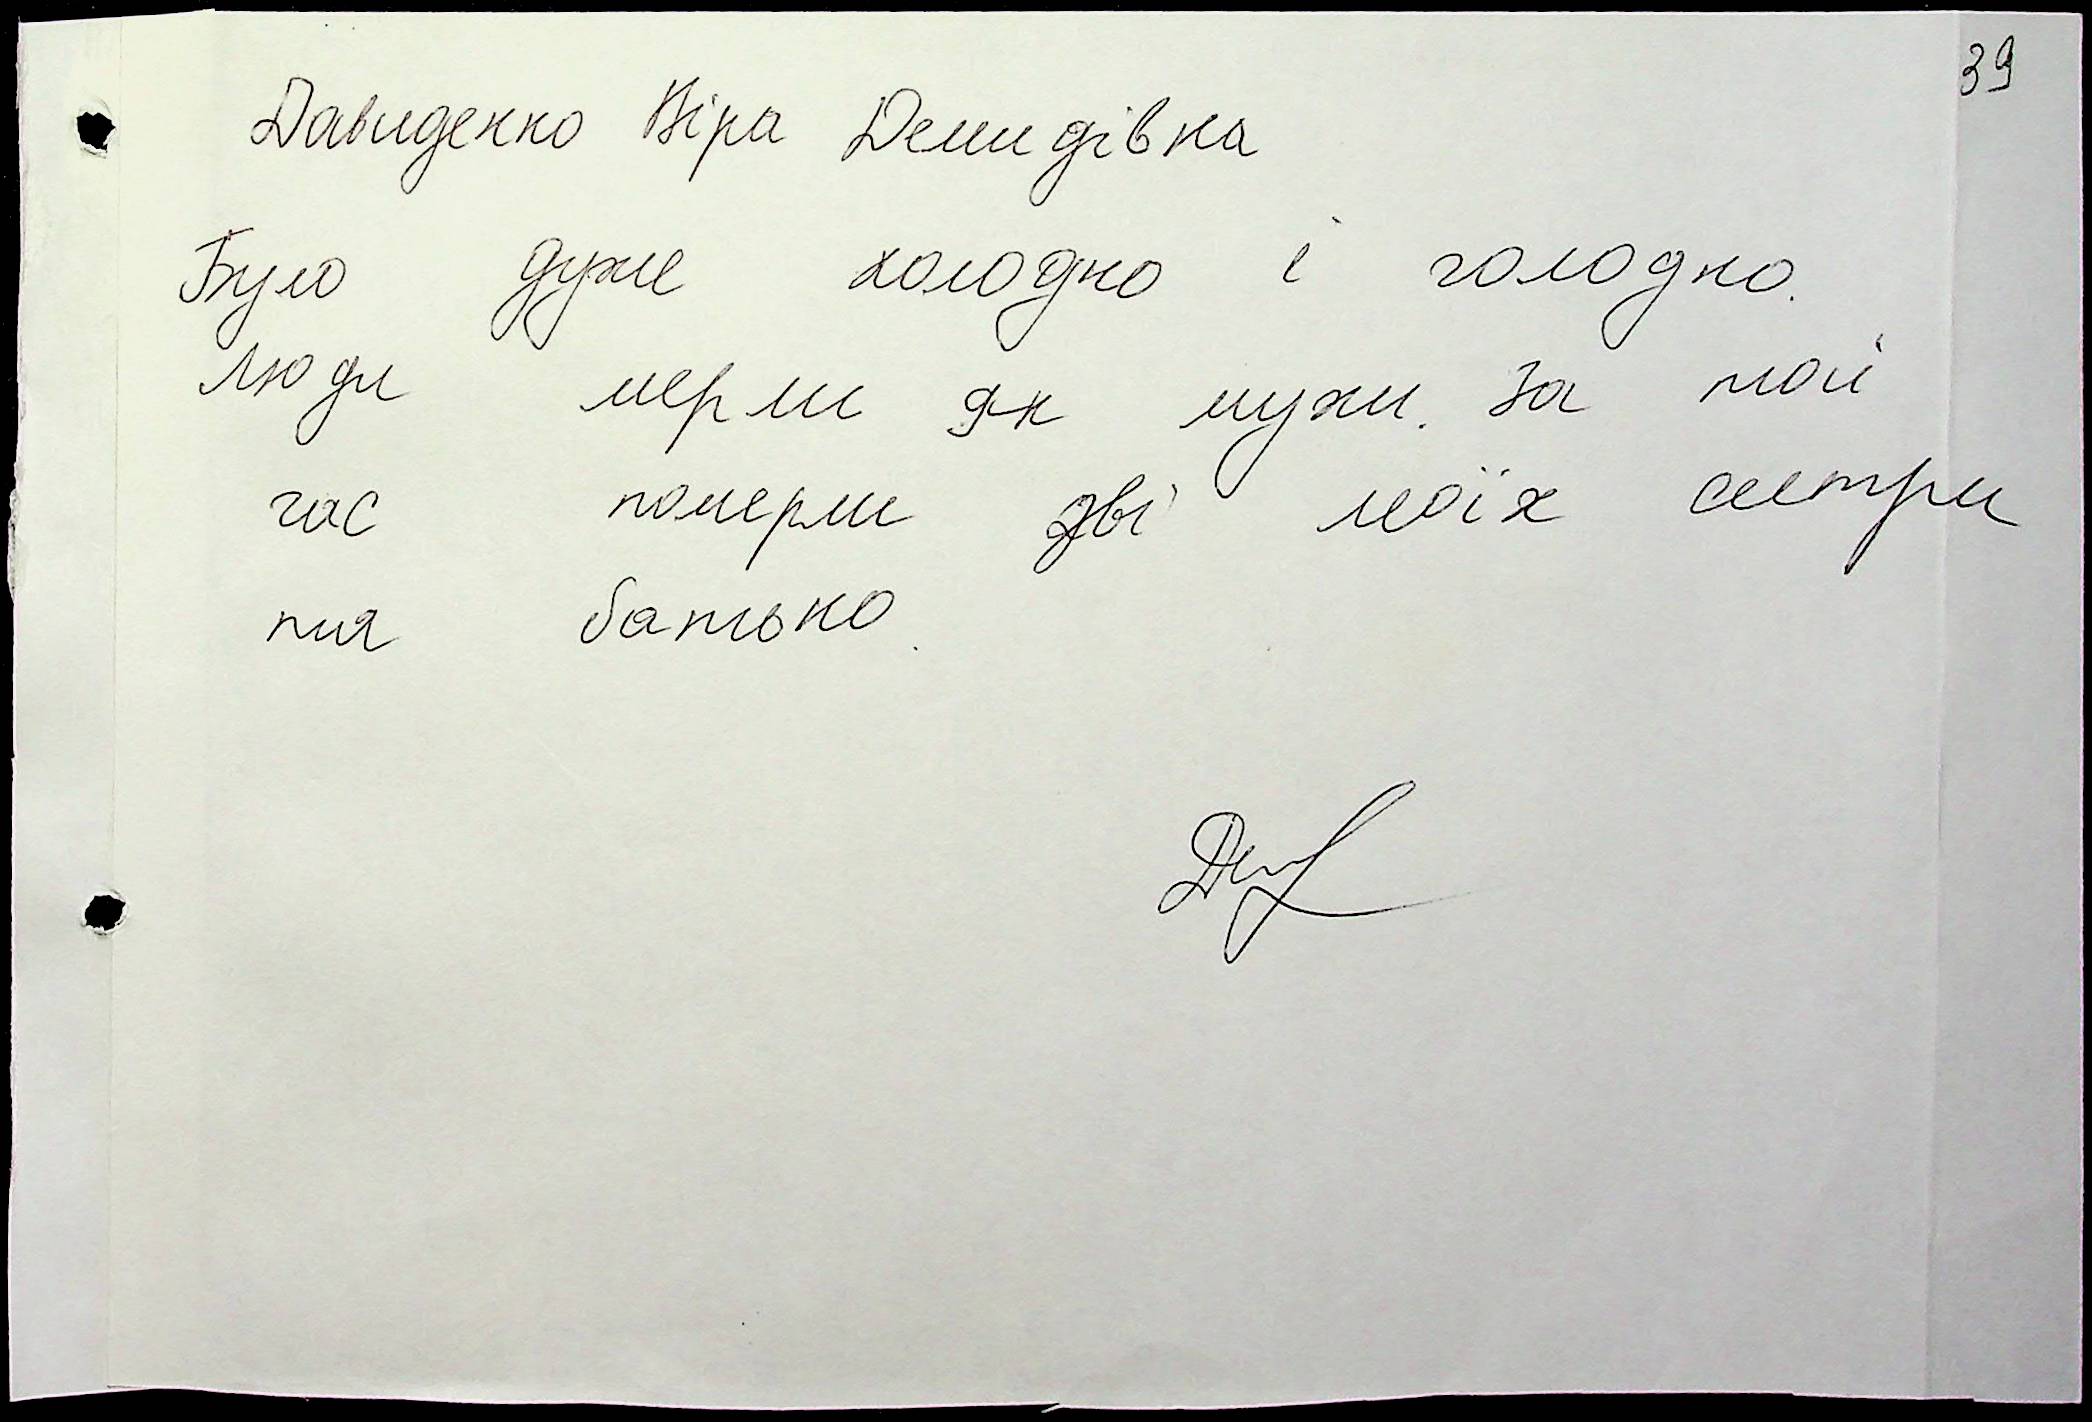 39
Давиденко Віра Демидівна
Було дуже холодно і голодно.
Люди мерли як мухи. За той
час померли дві моїх сестри
тия батько.